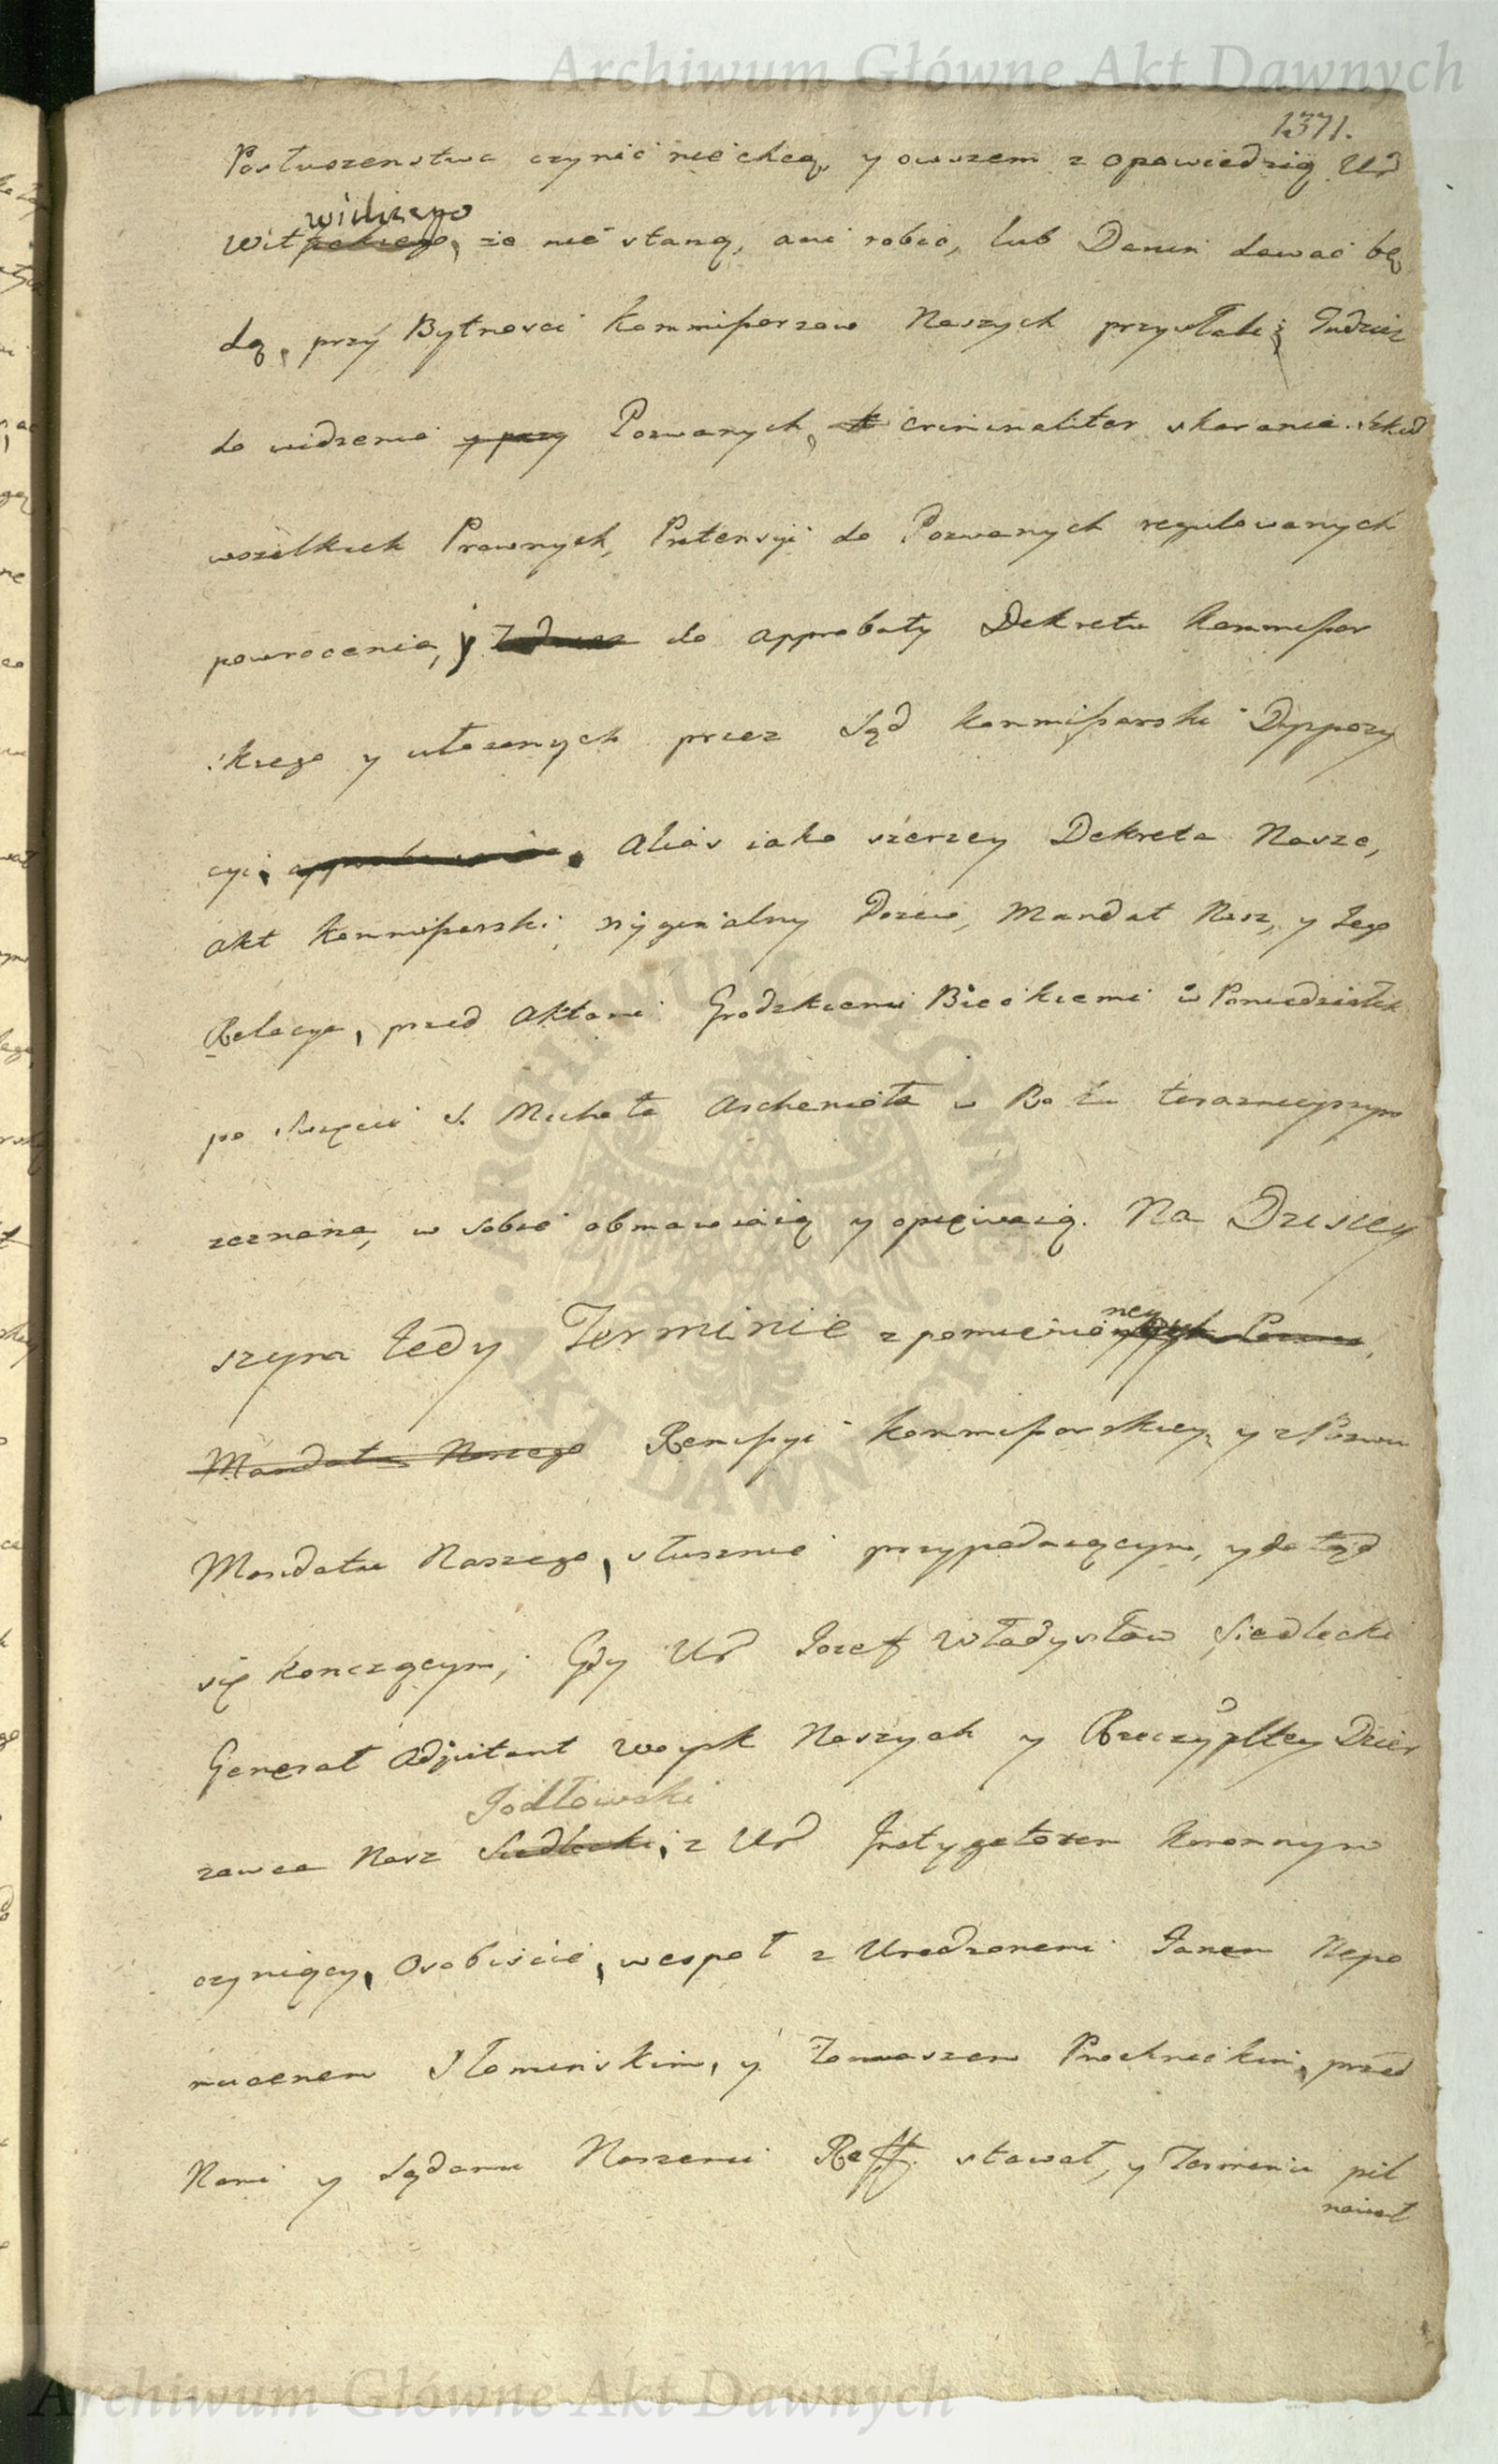 Archiwum Główne Akt Dawnych
1371.
Posłuszenstwa czynic nie chcą, y owszem z opowiedzią Ur
widzego
Wit, że nie staną, ani robic, lub Danin dawac bę
dą, przy Bytnosci Kommissarzow Naszych przysłali; Tudzież
do widzenia y przy Pozwanych, criminaliter skarania. Szkod
wszelkich Prawnych, Pretensyi do Pozwanych regulowanych
powrocenia, y do approbaty Dekretu Kommissar
skiego y ułozonych przez Sąd Kommissarski Dyspozy
cyi, Alias iako szerzey Dekreta Nasze,
Akt Kommissarski, oryginalny Pozew, Mandat Nasz, y Jego
Relacya, przed Aktami Grodzkiemi Bieckiemi w Poniedziałek
po Swięcie S. Michała Archanioła w Roku teraznieyszym
zeznana, w sobie obmawiaią y opiewaią. Na Dzisiey
szym tedy Terminie z pomienioney
Mandatu Naszego Remissyi Kommissarskiey, y z Pozwu
Mandatu Naszego, słusznie przypadaiącym, y dotąd
się konczącym, Gdy Ur Jozef Władysław Siedlecki
Generał Adjutant Woysk Naszych y Rzeczypltey Dzier
Jodłowski
zawca Nasz Siedlecki, z Ur Instygatorem Koronnym
czyniący, Osobiscie, wespoł z Urodzonemi Janem Nepo
mucenem Słominskim, y Tomaszem Prochnickim, przed
Nami y Sądami Naszemi Reff. stawał, y Terminu pil
nował
ARCHIWUM GŁÓWNE AKT DAWNYCH
Archiwum Główne Akt Dawnych